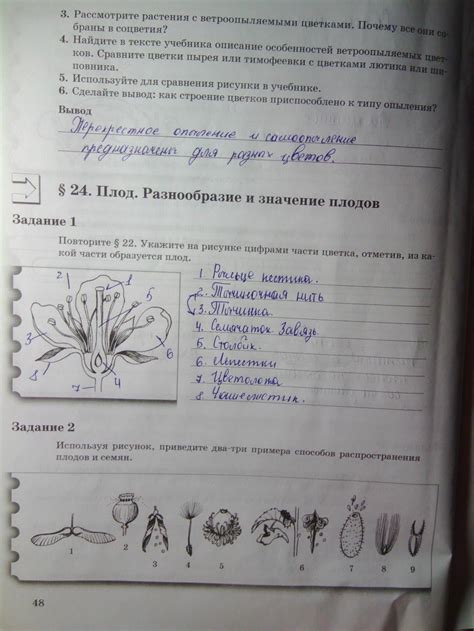 3. Рассмотрите растения с ветроопыляемыми цветками. Почему все они со-
браны в соцветия?
4. Найдите в тексте учебника описание особенностей ветроопыляемых цвет-
ков. Сравните цветки пырея или тимофеевки с цветками лютика или ши-
повника.
5. Используйте для сравнения рисунки в учебнике.
6. Сделайте вывод: как строение цветков приспособлено к типу опыления?
Вывод
Перекрестное опыление и самоопыление
предназначены для разных цветов.
§ 24. Плод. Разнообразие и значение плодов
Задание 1
Повторите § 22. Укажите на рисунке цифрами части цветка, отметив, из ка-
кой части образуется плод.
1 Рыльце пестика.
2. Тычиночная нить
3. Тычинка.
4. Семязачаток. Завязь.
5. Столбик.
6 Лепестки
7 Цветоложе
8 Чашелистик.
2 1
3 5
6
8 7 4
Задание 2
Используя рисунок, приведите два-три примера способов распространения
плодов и семян.
1 2 3 4 5 6 7 8 9
48